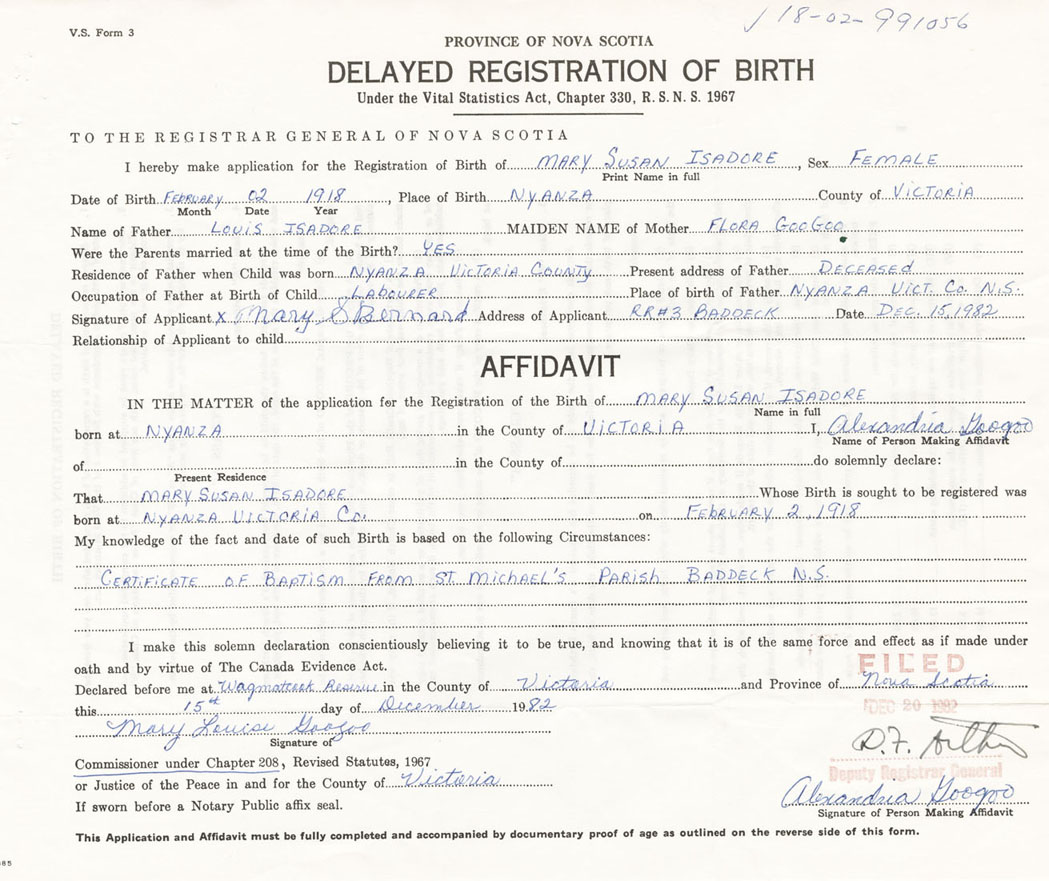 18-02-991056
V.S. Form 3
PROVINCE OF NOVA SCOTIA
DELAYED REGISTRATION OF BIRTH
Under the Vital Statistics Act, Chapter 330, R.S.N.S. 1967
TO THE REGISTRAR GENERAL OF NOVA SCOTIA
I hereby make application for the Registration of Birth of MARY SUSAN ISADORE, Sex FEMALE
Print Name in full
Date of Birth FEBRUARY 02 1918, Place of Birth NYANZA County of VICTORIA
Month Date Year
Name of Father LOUIS ISADORE MAIDEN NAME of Mother FLORA GOOGOO
Were the Parents married at the time of the Birth? YES
Residence of Father when Child was born NYANZA VICTORIA COUNTY Present address of Father DECEASED
Occupation of Father at Birth of Child LABOURER Place of birth of Father NYANZA VICT. CO. N.S.
Signature of Applicant X Mary S Bernard Address of Applicant RR#3 BADDECK Date DEC. 15, 1982
Relationship of Applicant to child
AFFIDAVIT
IN THE MATTER of the application for the Registration of the Birth of MARY SUSAN ISADORE
Name in full
born at NYANZA in the County of VICTORIA I, Alexandria Googoo
Name of Person Making Affidavit
of in the County of do solemnly declare:
Present Residence
That MARY SUSAN ISADORE Whose Birth is sought to be registered was
born at NYANZA VICTORIA CO. on FEBRUARY 2, 1918
My knowledge of the fact and date of such Birth is based on the following Circumstances:
CERTIFICATE OF BAPTISM FROM ST. MICHAEL'S PARISH BADDECK N.S.
I make this solemn declaration conscientiously believing it to be true, and knowing that it is of the same force and effect as if made under
oath and by virtue of The Canada Evidence Act.
FILED
Declared before me at Wagmatcook Reserve in the County of Victoria and Province of Nova Scotia
this 15th day of December 1982
DEC 20 1982
Mary Louise Googoo
Signature of
D.F.
Commissioner under Chapter 208, Revised Statutes, 1967
Deputy Registrar General
or Justice of the Peace in and for the County of Victoria
Alexandria Googoo
If sworn before a Notary Public affix seal.
Signature of Person Making Affidavit
This Application and Affidavit must be fully completed and accompanied by documentary proof of age as outlined on the reverse side of this form.
85